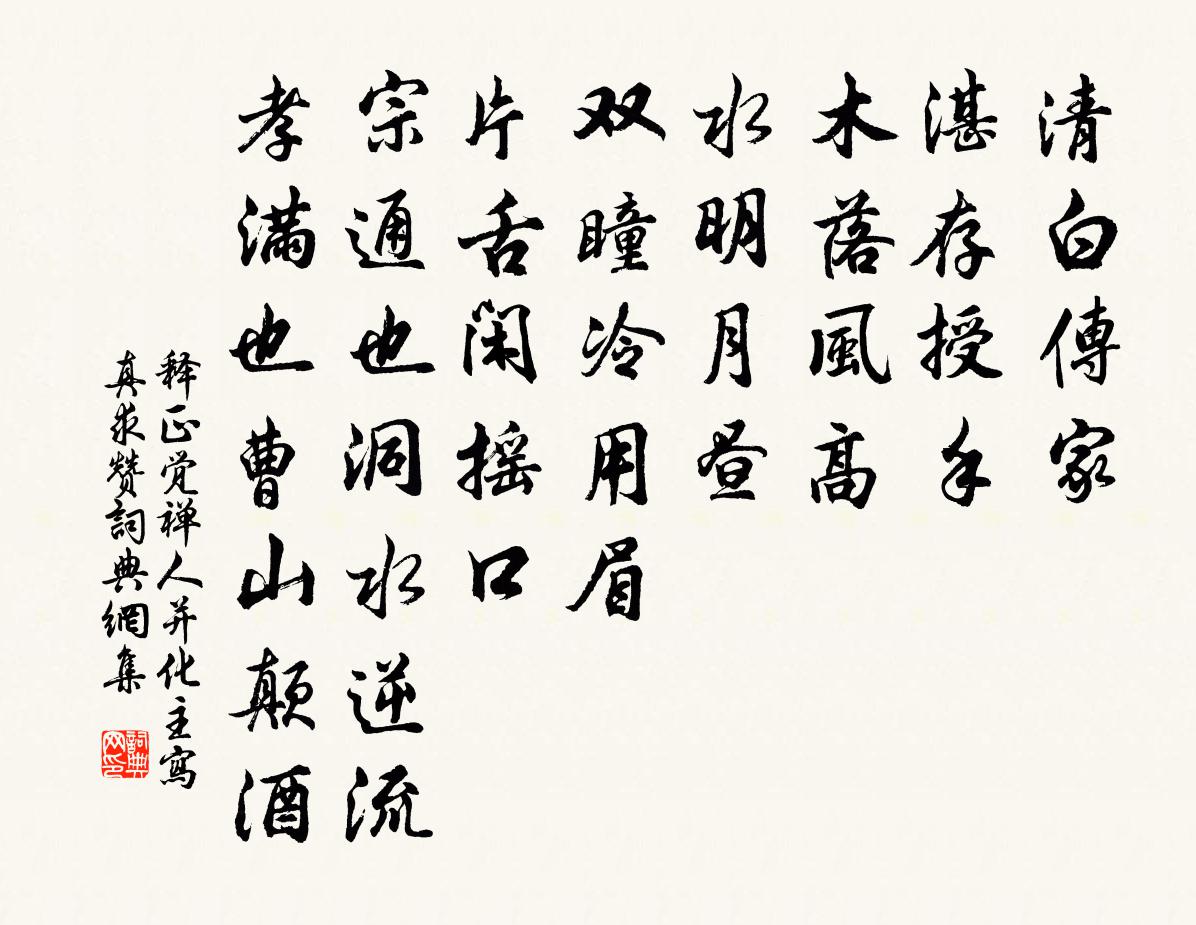 清白傳家
湛存授手
木落風高
水明月昼
双瞳冷用眉
片舌閑摇口
宗通也洞水逆流
孝满也曹山颠酒
释正觉禅人并化主寫
真求赞詞典網集
詞典网印